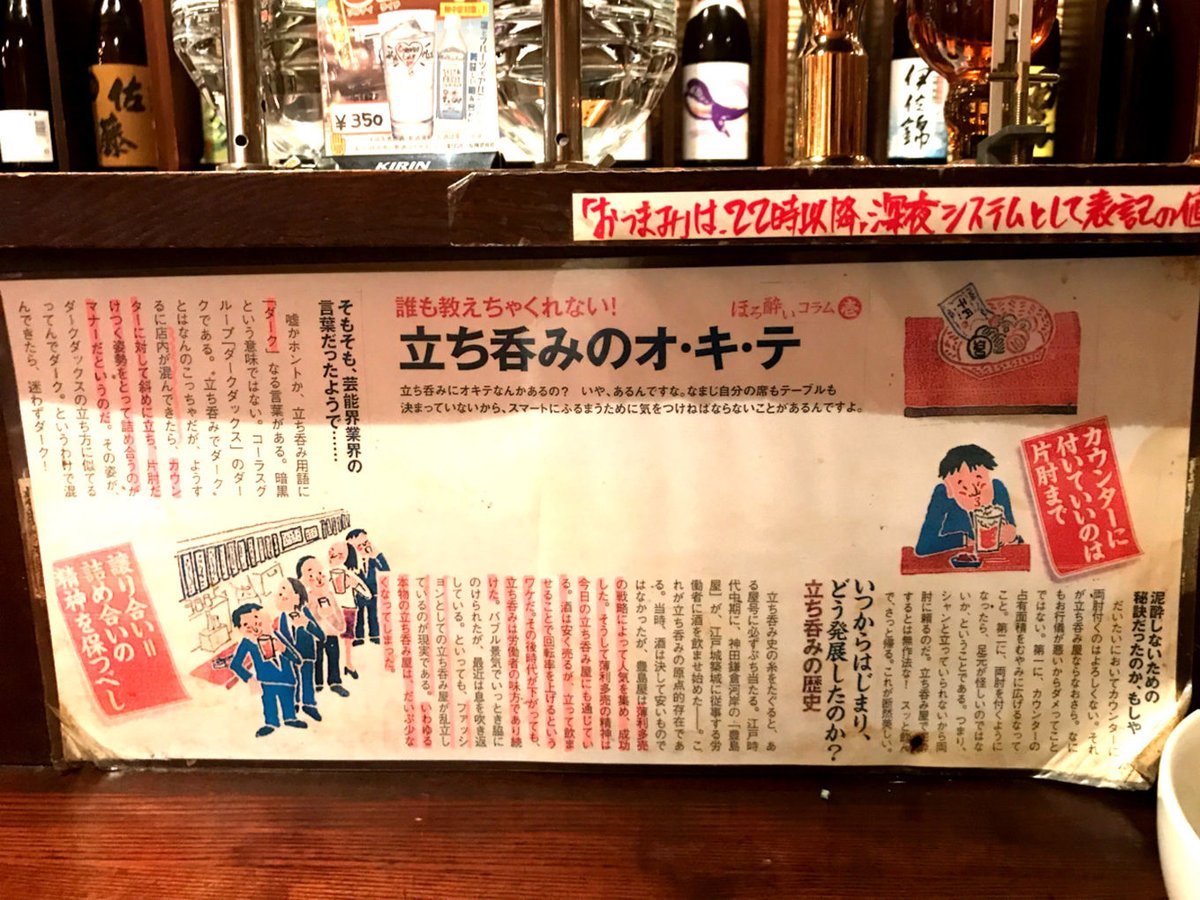 佐藤
¥350
KIRIN
伊佐錦
「おつまみ」は、22時以降、深夜システムとして表記の
誰も教えちゃくれない!
ほろ酔いコラム 壱
立ち呑みのオ・キ・テ
立ち呑みにオキテなんかあるの? いや、あるんですな。なまじ自分の席もテーブルも
決まっていないから、スマートにふるまうために気をつけねばならないことがあるんですよ。
カウンターに
付いていいのは
片肘まで
泥酔しないための
秘訣だったのか、もしや
だいたいにおいてカウンターに
両肘付くのはよろしくない。それ
が立ち呑み屋ならなおさら。なに
もお行儀が悪いからダメってこと
ではない。第一に、カウンターの
占有面積をむやみに広げるなって
こと。第二に、両肘を付くように
なったら、足元が怪しいのではな
いか、ということである。つまり、
シャンと立っていられないから両
肘に頼るのだ。立ち呑み屋で泥酔
するとは無作法な! スッと飲ん
で、さっと帰る。これが断然美しい。
いつからはじまり、
どう発展したのか?
立ち呑みの歴史
立ち呑み史の糸をたぐると、あ
る屋号に必ずぶち当たる。江戸時
代中期に、神田鎌倉河岸の「豊島
屋」が、江戸城築城に従事する労
働者に酒を飲ませ始めた――。こ
れが立ち呑みの原点的存在であ
る。当時、酒は決して安いもので
はなかったが、豊島屋は薄利多売
の戦略によって人気を集め、成功
した。そうして薄利多売の精神は
今日の立ち呑み屋にも通じてい
る。酒は安く売るが、立って飲ま
せることで回転率を上げるという
ワケだ。その後時代が下がっても、
立ち呑みは労働者の味方であり続
けた。バブル景気でいっとき脇に
のけられたが、最近は息を吹き返
している。といっても、ファッシ
ョンとしての立ち呑み屋が乱立し
ているのが現実である。いわゆる
本物の立ち呑み屋は、だいぶ少な
くなってしまった。
そもそも、芸能界業界の
言葉だったようで……
嘘かホントか、立ち呑み用語に
「ダーク」なる言葉がある。暗黒
という意味ではない。コーラスグ
ループ「ダークダックス」のダー
クである。立ち呑みでダーク、
とはなんのこっちゃだが、ようす
るに店内が混んできたら、カウン
ターに対して斜めに立ち、片肘だ
けつく姿勢をとって詰め合うのが
マナーだというのだ。その姿が、
ダークダックスの立ち方に似てる
ってんでダーク。というわけで混
んできたら、迷わずダーク!
譲り合い=
詰め合いの
精神を保つべし